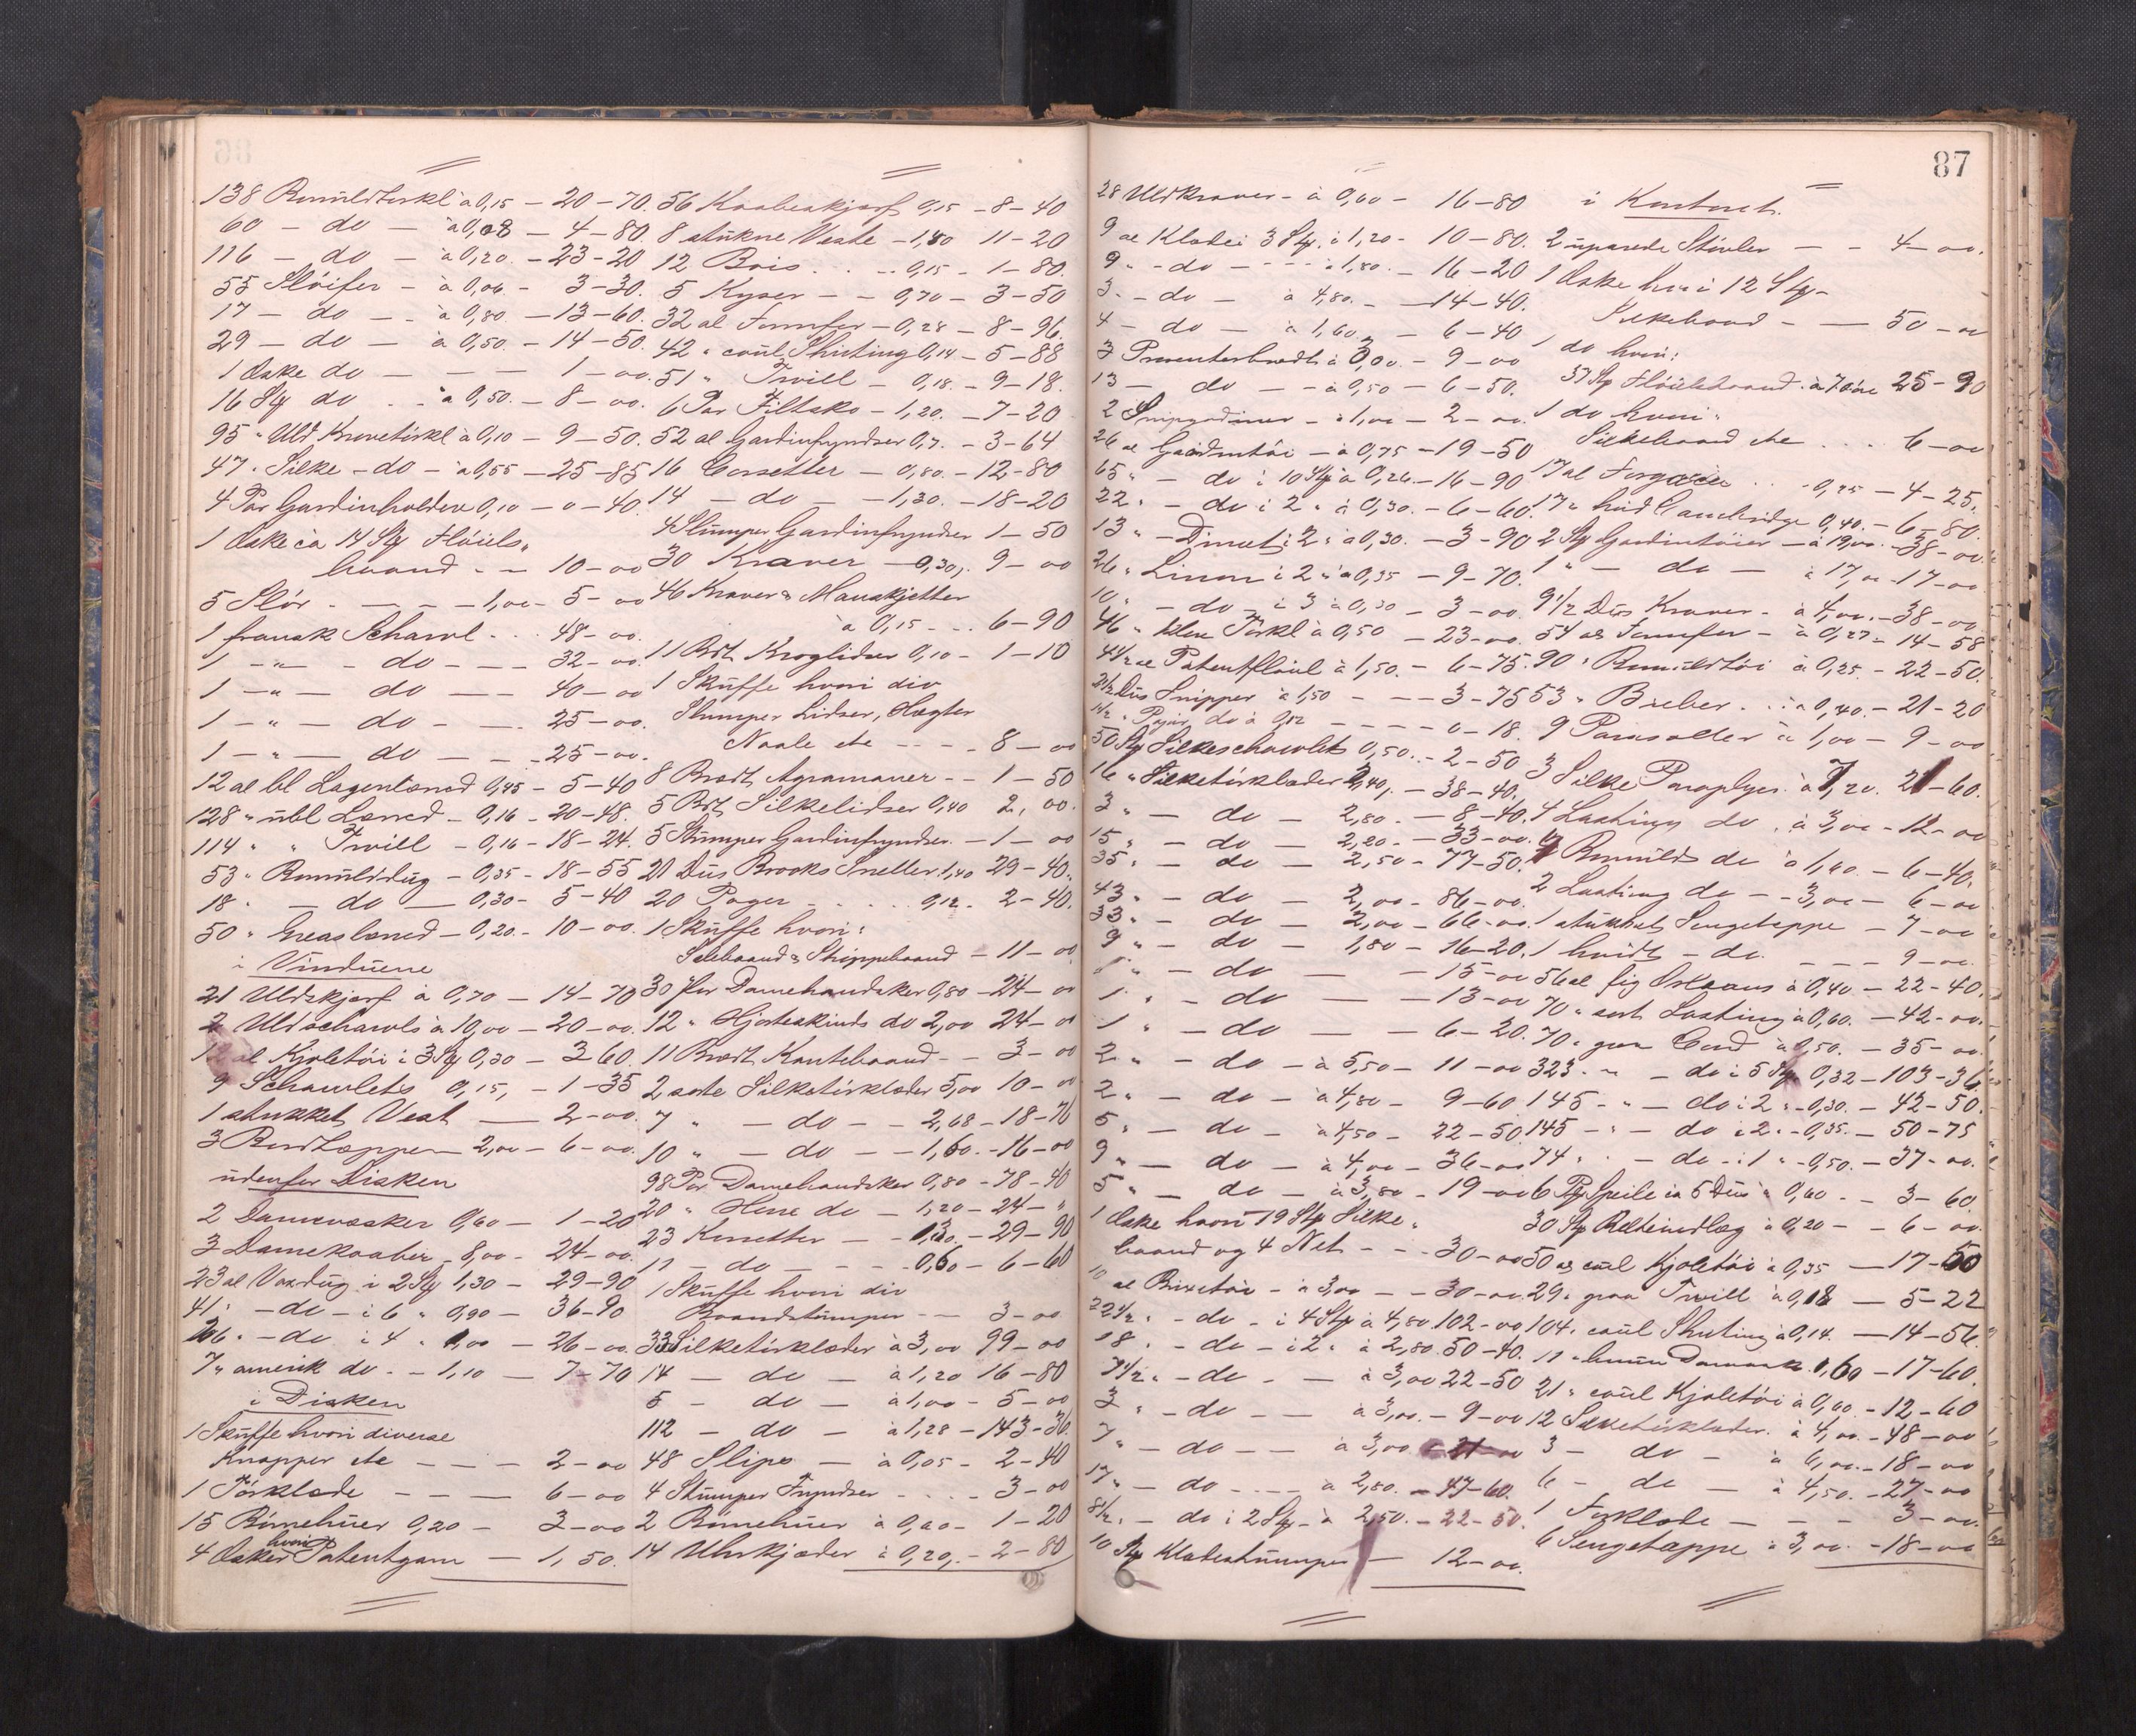 138 Bomuldtørkl à 0,15 — 20–70.
60 — do — à 0,08 — 4–80.
116 — do — à 0,20. — 23–20
55 Sløifer — à 0,06 — 3–30.
17 — do — à 0,80 — 13–60.
29 — do — à 0,50. — 14–50.
1 Æske do — — — 1–00.
16 Stk do - - à 0,50. — 8–00.
95 " Uld Kravetørkl à 0,10 — 9–50.
47 " Silke — do — à 0,55 — 25–85
4 Par Gardinholdere 0,10 — 0–40.
1 Æske ca 14 Stk Fløiels-
baand — — 10–00
5 Slør — — — 1,00 — 5–00
1 fransk Schawl - - 48–00.
1 — " — do — — 32–00.
1 — " — do — — 40–00
1 — " — do — — 25–00.
1 — " — do — — 25–00.
12 al bl Lagenlærred 0,45 — 5–40
128 " ubl Lærred — 0,16 — 20–48.
114 " " Twill — 0,16 — 18–24.
53 " Bomuldsdug — 0,35 — 18–55
18 " — do — 0,30 — 5–40
50 " Græslærred — 0,20 — 10–00.
i Vinduerne
21 Uldskjerf à 0,70 — 14–70
2 Uldschawls à 10,00 — 20–00.
12 al Kjoletøi i 3 Stk 0,30 — 3–60.
9 Schawlets 0,15, — 1–35
1 strikket Vest — 2–00.
3 Bordtæpper 2,00 — 6–00.
udenfor Disken
2 Damevæsker 0,60 — 1–20
3 Damekaaber 8,00 — 24–00.
23 al Voxdug i 2 Stk 1,30 — 29–90
41 " — do — i 6 " 0,90 — 36–90
26 " — do i 4 " 1,00 — 26–00.
7 " amerik do - - 1,10 — 7–70
i Disken
1 Skuffe hvori diverse
Knapper etc — — — 2–00
1 Tørklæde — — — 6–00
15 Børnehuer 0,20 — 3–00
4 Æsker hvori Patentgarn — 1,50.
56 Kaabeskjerf 0,15 — 8–40
8 strikne Veste — 1,40 11–20
12 Bois - - - 0,15 — 1–80.
5 Kyser — — 0,70 — 3–50
32 al Jernfor — 0,28 — 8–96.
42 " coul Shirting 0,14 — 5–88
51 " Twill — 0,18 — 9–18.
6 Par Filtsko — 1,20. — 7–20
52 al Gardinfryndser 0,7. — 3–64
16 Corsetter — 0,80 — 12–80
14 — do — — 1,30. — 18–20
4 Stumper Gardinfryndser 1–50
30 Kraver — 0,30, 9–00
46 Kraver & Manskjetter
à 0,15 - - 6–90
11 Brt. Kroglidser 0,10 — 1–10
1 Skuffe hvori div
Stumper Lidser, Hægter
Naale etc — — 8–00
8 Brædt Agramaner — — 1–50
5 Brt Silkelidser 0,40 2,00.
5 Stumper Gardinfryndser — 1–00
21 Dus Brooks Sneller 1,40 29–40.
20 Poger - - - 0,12 — 2–40.
1 Skuffe hvori:
Selebaand & Strippebaand — 11–00
30 par Damehandsker 0,80 — 24–00
12 " Hjorteskinds do 2,00 24–00
11 Brædt Kantebaand — — 3–00
2 sorte Silketørklæder 5,00 10–00
7 " — do — — 2,68 — 18–76
10 " — do — — 1,60. — 16–00
98 Par Damehandsker 0,80 — 78–40
20 " Herre do — 1,20 — 24–"
23 Korsetter — — 1,30. — 29–90
11 — do — — — 0,60 — 6–60
1 Skuffe hvori div
Baandstumper — — 3–00
33 Silketørklæder à 3,00 99–00
14 — do — à 1,20 16–80
5 — do — à 1,00 — 5–00
112 — do — à 1,28 — 143–36
48 Slips — à 0,05 — 2–40
4 Stumper Fryndser - - - 3–00
2 Børnehuer à 0,60 — 1–20
14 Uhrkjæder à 0,20, — 2–80
87
28 Uldkraver — à 0,60 — 16–80
9 al Klæde i 3 Stk. à 1,20 — 10–80.
9 " — do — - - à 1,80. — 16–20
3 " — do — à 4,80. — 14–40.
4 — do — à 1,60 — 6–40
3 Presenterbredt à 3,00. — 9–00
13 — do — — à 0,50 — 6–50.
2 — à 1,00 — 2–00.
26 al Gardintøi — à 0,75 — 19–50
65 " — do i 10 Stk à 0,26. — 16–90
22 " — do i 2 " à 0,30. — 6–60.
13 " — Dimet i 2 " à 0,30. — 3–90
26 " Linon i 2 " à 0,35 — 9–70.
10 " — do — i 3 à 0,30 — 3–00.
46 " klæn Tørkl à 0,50 — 23–00.
4 1/2 al Patentfløiel à 1,50. — 6–75.
2 1/2 Dus Snipper à 1,50 — — 3–75
1 1/2 " Papir do à 0,12 — — — 0–18.
50 Stk Silkeschawlets 0,50. — 2–50
16 " Silketørklæder 2,40, — 38–40.
3 " — do — 2,80. — 8–40.
15 " — do — 2,20. — 33–00.
35 " — do — 2,50 — 77–50.
43 " — do — 2,00 — 86–00.
33 " — do — 2,00 — 66–00.
9 " — do — 1,80 — 16–20.
1 " — do — — 15–00
1 " — do — — 13–00
1 " — do — — 6–20.
2 " — do — à 5,50 — 11–00
2 " — do — à 4,80 — 9–60
5 " — do — à 4,50 — 22–50
9 " — do — à 4,00 — 36–00
5 " — do — à 3,80 — 19–00
1 Æske hvori 19 Stk Silke-
baand og 4 Net — — 30–00
10 al Buxetøi — à 3,00 — — 30–00.
22 1/2 " — do — i 4 Stk à 4,80 102–00
18 " — do — i 2 " à 2,80. 50–40.
7 1/2 " — do — — à 3,00 22–50
3 " — do — — à 3,00. — 9–00
7 " — do — — à 3,00 — 21–00
17 " — do - - - à 2,80. — 47–60.
8 1/2 " — do i 2 Stk — à 2,50. — 22–50.
10 Stk Klædestumper — 12–00.
i Kontoret.
2 uparede Støvler — — 4–00.
1 Æske hvori 12 Stk
Silkebaand — — 50–00
1 do hvori:
37 Stk Fløielsbaand à 70 øre 25–90
1 do hvori:
Silkebaand etc - - - 6–00
17 al - - - 0,25 — 4–25.
17 " hvid Cambridge 0,40. — 6–80.
2 Stk Gardintøier — à 19,00. — 38–00.
1 " — do — à 17,00 — 17–00
9 1/2 Dus Kraver — à 4,00. — 38–00
54 al Jernfor — à 0,27 — 14–58
90 " Bomuldtøi à 0,25 — 22–50.
53 " Bieber - - à 0,40. — 21–20
9 Parasoller à 1,00 — 9–00
3 Silke Paraplyer à 7,20. 21–60.
4 Lasting do à 3,00 — 12–00
4 Bomulds do à 1,60 — 6–40.
2 Lasting do — — 3,00 — 6–00
1 strikket Sengetæppe — 7–00
1 hvidt — do — — — 9–00.
56 al fig Orleans à 0,40 — 22–40.
70 " sort Lasting à 0,60. — 42–00.
70 " graa Cord à 0,50. — 35–00.
323 " — do i 5 Stk 0,32 — 103–36.
145 — " — do i 2 " — 0,30. — 42–50.
145 — " — do i 2 " — 0,35. — 50–75
74 " — do — i 1 " — 0,50. — 37–00.
6 Pk Speile ca 6 Dus à 0,60 — — 3–60.
30 Stk Belteindlæg à 0,20 — — 6–00
50 al coul Kjoletøi à 0,35 — 17–50
29 " graa Twill à 0,18 — 5–22
104 " coul Shirting à 0,14. — 14–56.
11 " brun Damask 1,60 — 17–60.
21 " coul Kjoletøi à 0,60 — 12–60
12 Silketørklæder à 4,00. — 48–00
3 — do — à 6,00. — 18–00
6 — do — à 4,50. — 27–00
1 Forklæde — — — 3–00.
6 Sengetæppe à 3,00. — 18–00